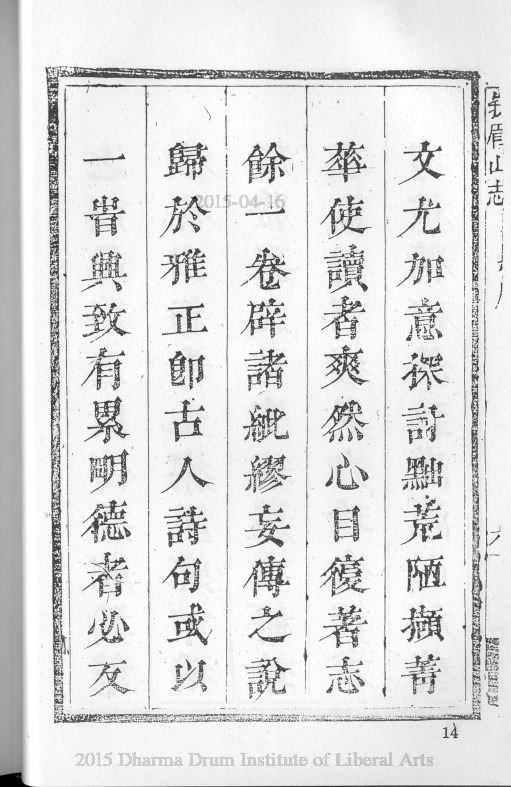 峨眉山志
文尤加意探討黜荒陋擷菁
華使讀者爽然心目復著志
餘一卷辟諸紕繆妄傳之說
歸於雅正卽古人詩句或以
一旹興致有累明德者必反
14
2015-04-16
2015 Dharma Drum Institute of Liberal Arts